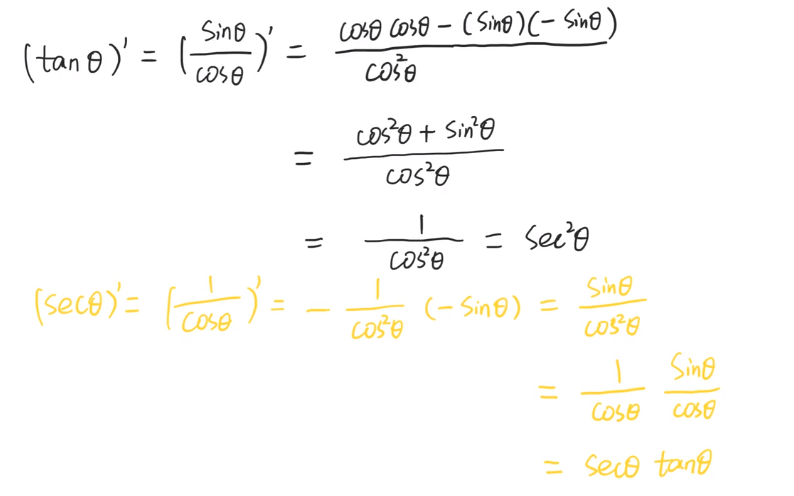 (tanθ)' = (sinθ/cosθ)' = (cosθ cosθ - (sinθ)(- sinθ))/cos²θ
= (cos²θ + sin²θ)/cos²θ
= 1/cos²θ = sec²θ
(secθ)' = (1/cosθ)' = - 1/cos²θ (- sinθ) = sinθ/cos²θ
= 1/cosθ sinθ/cosθ
= secθ tanθ